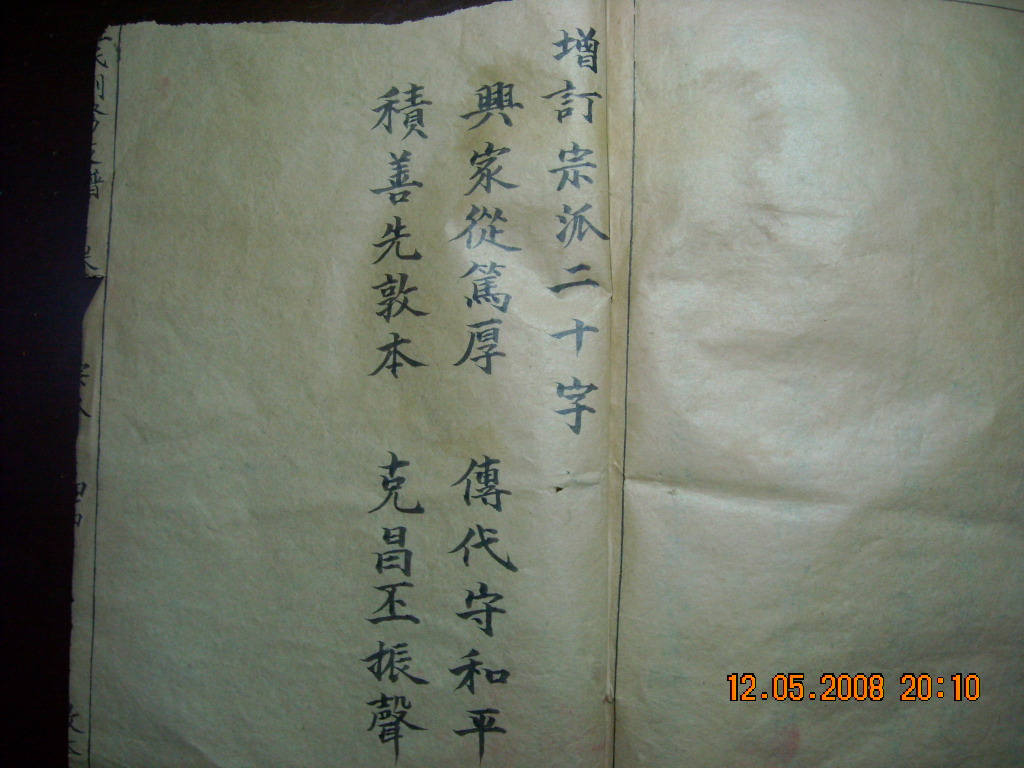 增訂宗派二十字
興家從篤厚 傳代守和平
積善先敦本 克昌丕振聲
譜
12.05.2008 20:10